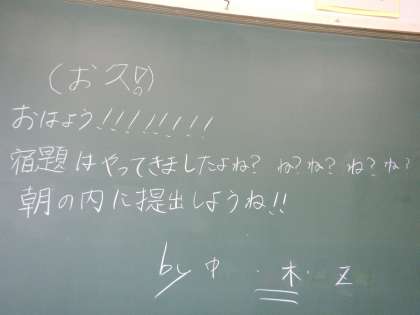 おはよう!!!!!!!!
宿題はやってきましたよね? ね?ね? ね? ね?
朝の内に提出しようね!!
by 中 · 木· Z